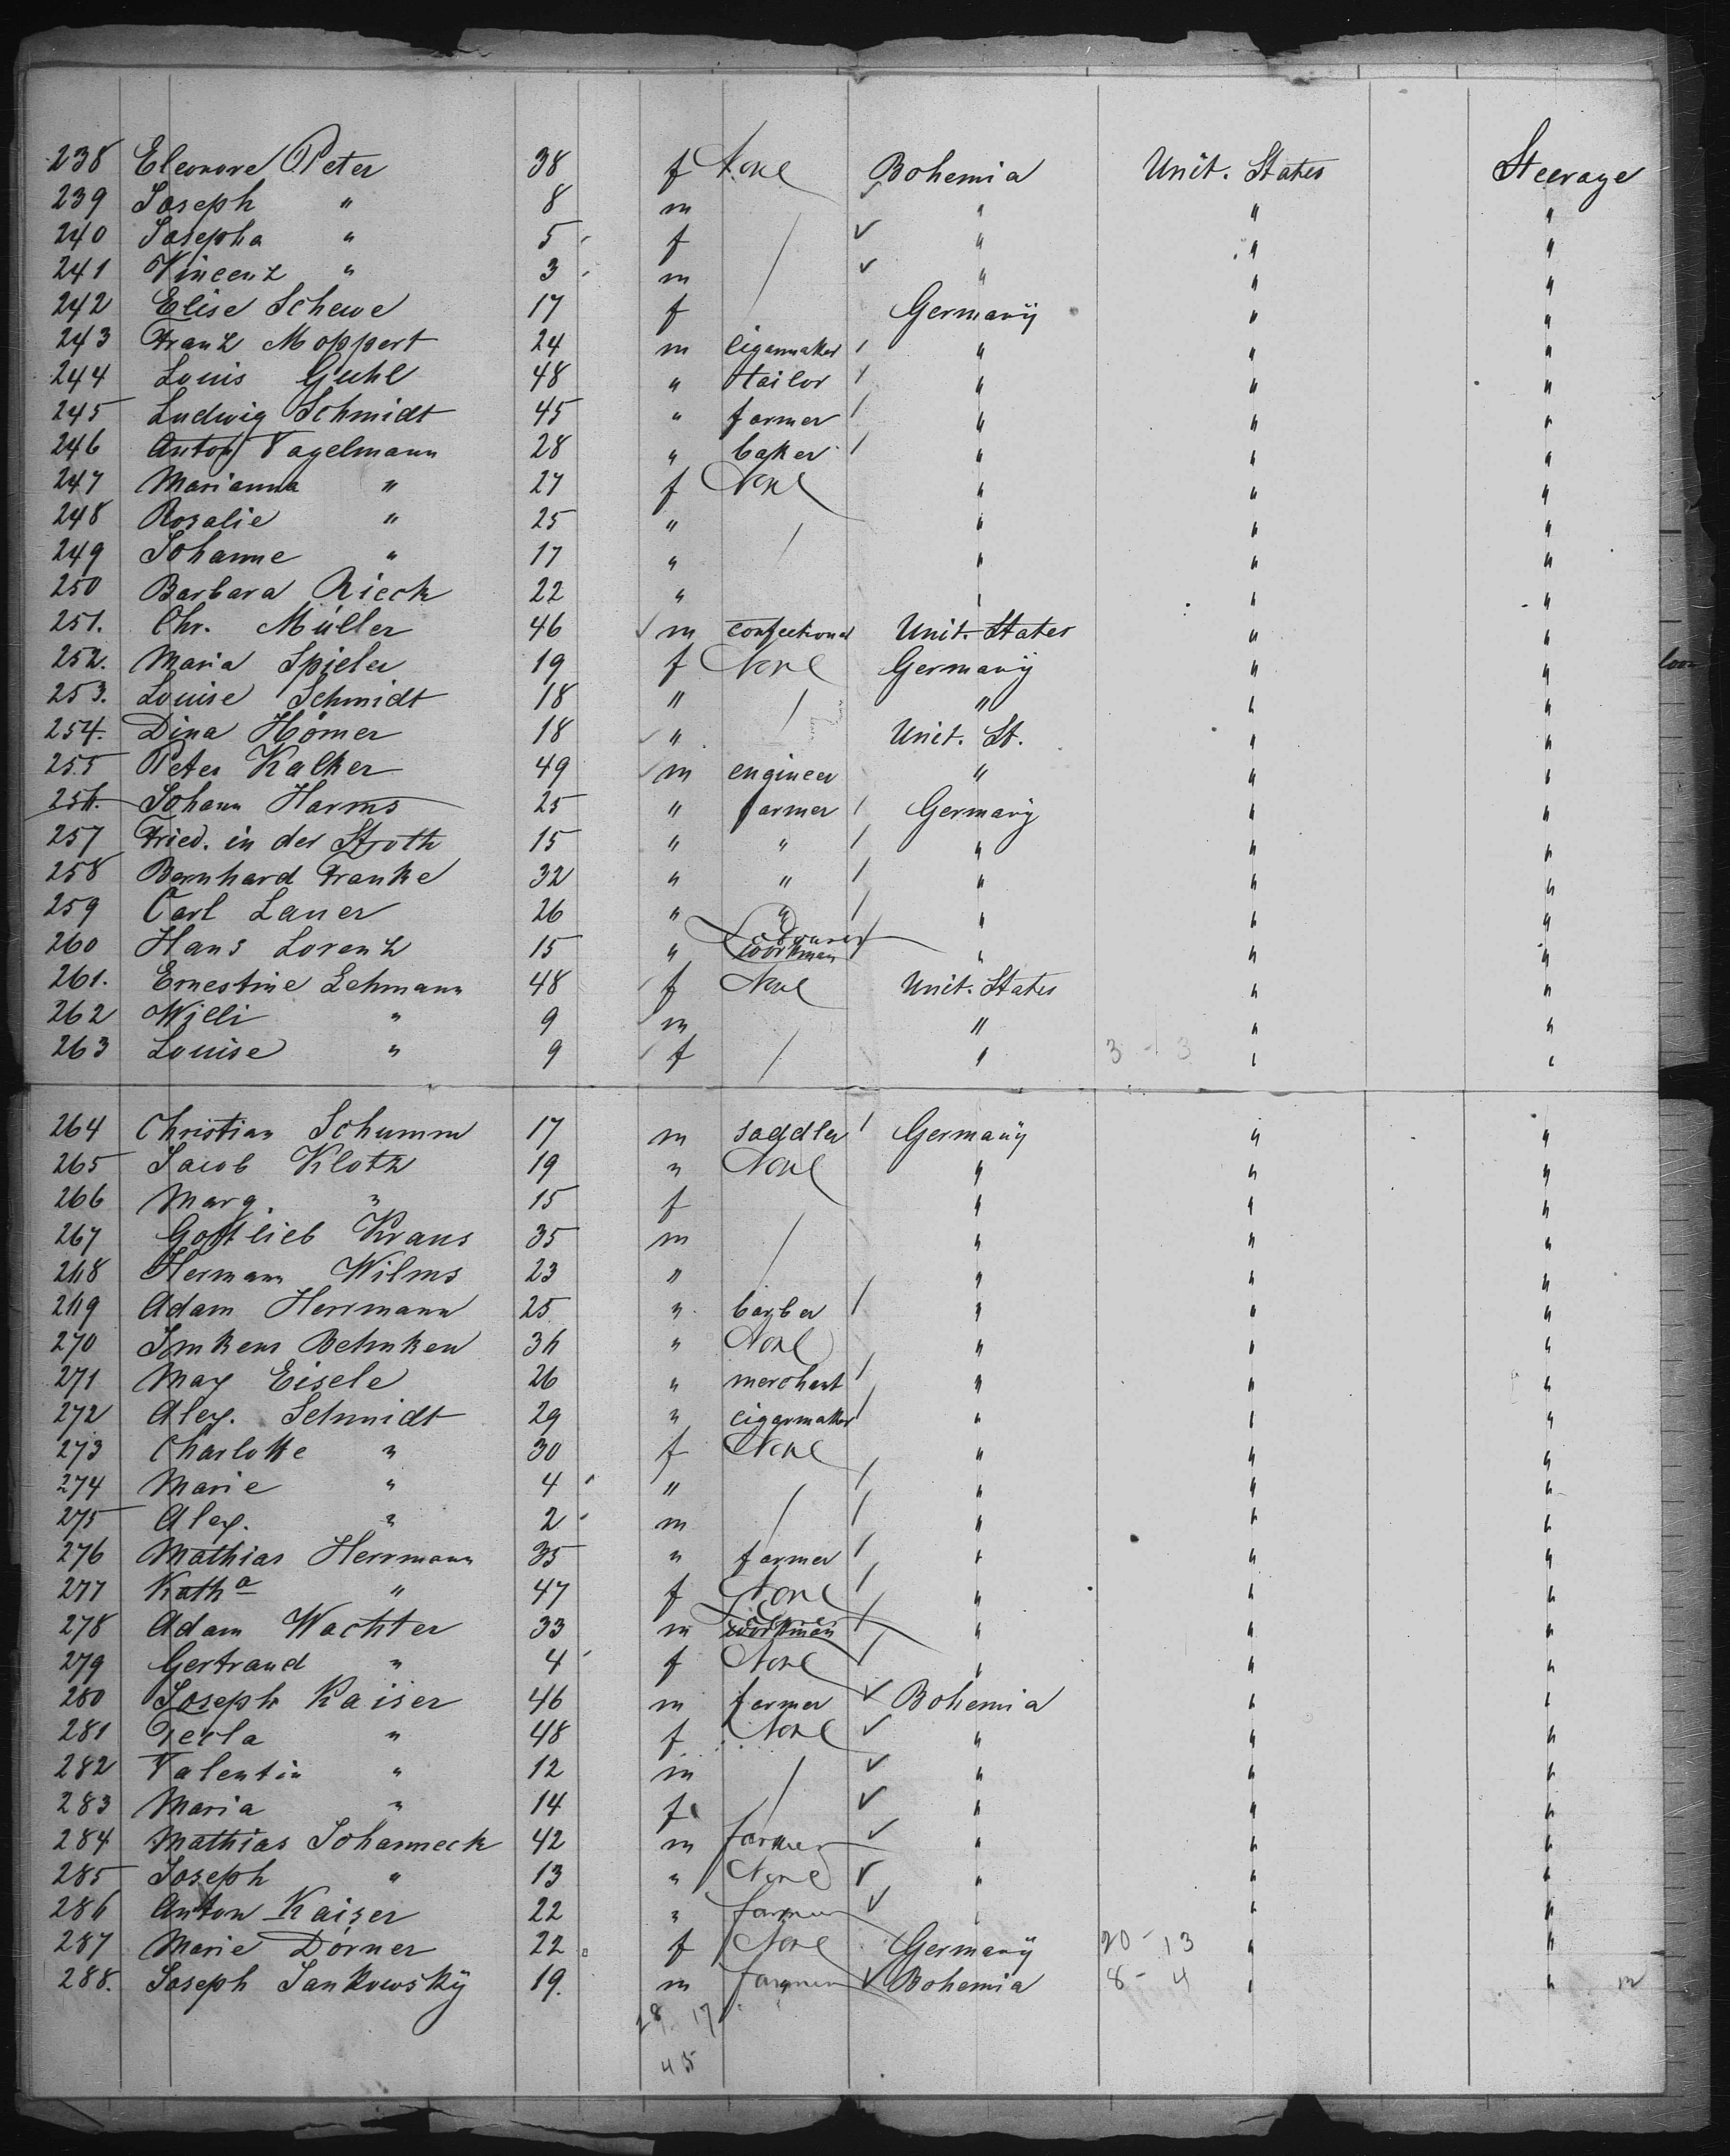 238 Eleonore Peter 38 f None Bohemia Unit. States Steerage
239 Joseph " 8 m " " "
240 Josepha " 5 f " " "
241 Vincenz " 3 m " " "
242 Elise Schewe 17 f Germany " "
243 Franz Moppert 24 m cigarmaker " " "
244 Louis Guhl 48 " tailor " " "
245 Ludwig Schmidt 45 " farmer " " "
246 Anton Vagelmann 28 " baker " " "
247 Marianna " 27 f None " " "
248 Rosalie " 25 " " " "
249 Johanne " 17 " " " "
250 Barbara Rieck 22 " " " "
251. Chr. Müller 46 m confectioner Unit. States " "
252. Maria Spieler 19 f None Germany " "
253. Louise Schmidt 18 " " " "
254. Dina Hömer 18 " Unit. St. " "
255 Peter Kalker 49 m engineer " " "
256. Johann Harms 25 " farmer Germany " "
257 Fried. in der Stroth 15 " " " " "
258 Bernhard Franke 32 " " " " "
259 Carl Lauer 26 " " " " "
260 Hans Lorenz 15 " workman " " "
261. Ernestine Lehmann 48 f None Unit. States " "
262 Willi " 9 m " " "
263 Louise " 9 f " 3 - 3 " "
264 Christian Schumm 17 m saddler Germany " "
265 Jacob Klotz 19 " None " " "
266 Marg. " 15 f " " "
267 Gottlieb Kraus 35 m " " "
268 Hermann Wilms 23 " " " "
269 Adam Herrmann 25 " barber " " "
270 Imkens Behnken 36 " None " " "
271 Max Eisele 26 " merchant " " "
272 Alex. Schmidt 29 " cigarmaker " " "
273 Charlotte " 30 f None " " "
274 Marie " 4 " " " "
275 Alex. " 2 m " " "
276 Mathias Herrmann 35 " farmer " " "
277 Katha " 47 f None " " "
278 Adam Wachter 33 m workman " " "
279 Gertraud " 4 f None " " "
280 Joseph Kaiser 46 m farmer Bohemia " "
281 " 48 f None " " "
282 Valentin " 12 m " " "
283 Maria " 14 f " " "
284 Mathias Johanneck 42 m farmer " " "
285 Joseph " 13 " None " " "
286 Anton Kaiser 22 " farmer " " "
287 Marie Dörner 22 f None Germany 20 - 13 " "
288. Joseph Jankowsky 19. m farmer Bohemia 8 - 4 " "
28 17
45